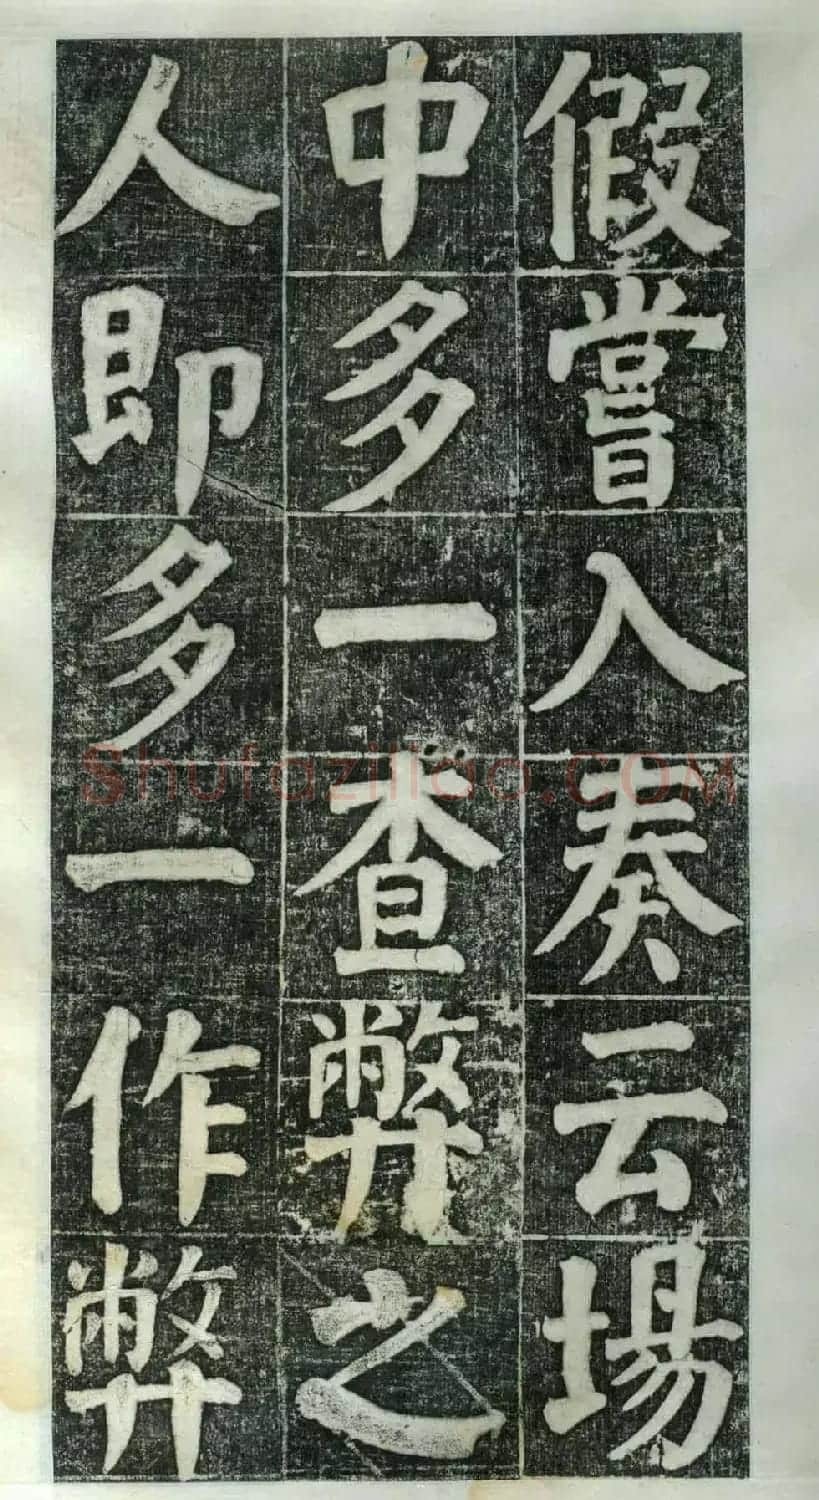 假嘗入奏云場
中多一查弊之
人即多一作弊
Shufaziliao.COM